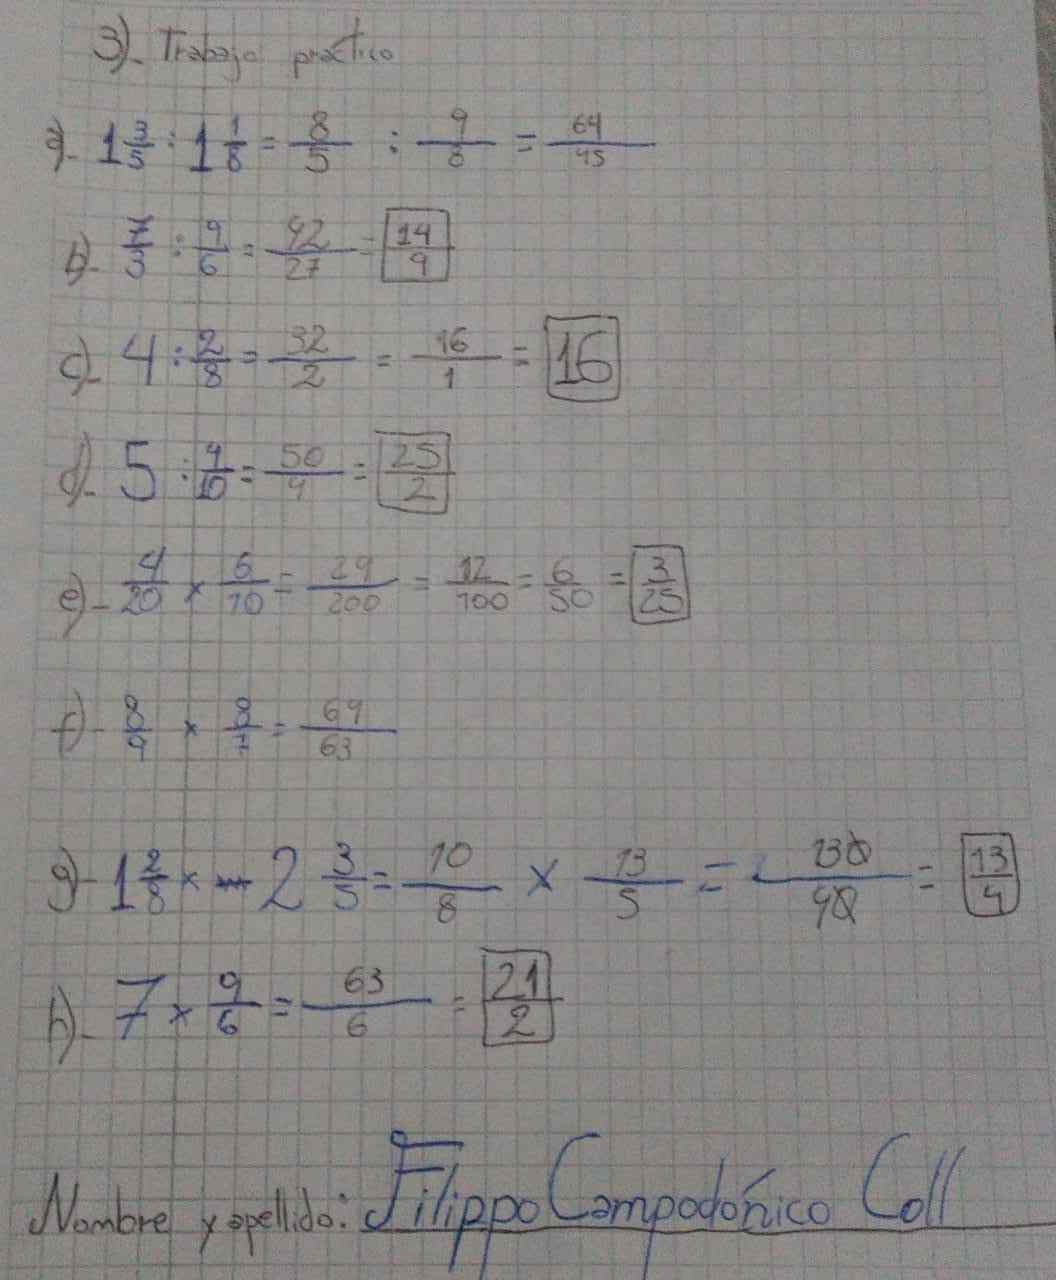 3)- Trabajo práctico
a)- 1 3/5 : 1 1/8 = 8/5 : 9/8 = 64/45
b)- 7/3 : 9/6 = 42/27 = 14/9
c)- 4 : 2/8 = 32/2 = 16/1 = 16
d)- 5 : 4/10 = 50/4 = 25/2
e)- 4/20 × 6/10 = 24/200 = 12/100 = 6/50 = 3/25
f)- 8/9 × 8/7 = 64/63
g)- 1 2/8 × 2 3/5 = 10/8 × 13/5 = 130/40 = 13/4
h)- 7 × 9/6 = 63/6 = 21/2
Nombre y apellido: Filippo Campodónico Coll